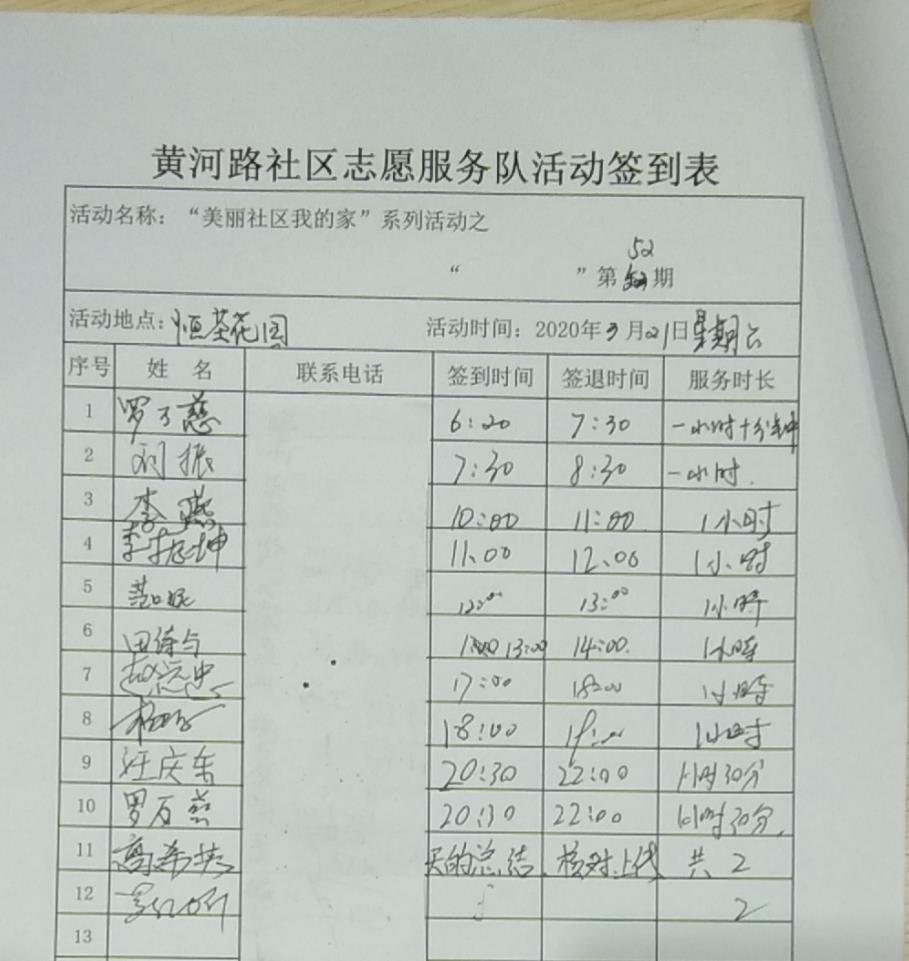 黄河路社区志愿服务队活动签到表
活动名称：“美丽社区我的家”系列活动之
52
“ ”第 期
活动地点：恒基花园 活动时间：2020年3月21日星期六
序号 姓 名 联系电话 签到时间 签退时间 服务时长
1 罗万慈 6:20 7:30 一小时十分钟
2 刘振 7:30 8:30 一小时.
3 李燕 10:00 11:00 1小时
4 李振坤 11:00 12:00 1小时
5 12:00 13:00 1小时
6 13:00 14:00 1小时
7 赵志忠 17:00 18:00 1小时
8 18:00 19:00 1小时
9 汪庆东 20:30 22:00 1小时30分
10 罗万慈 20:30 22:00 1小时30分
11 高希英 天的总结 核对上线 共 2
12 2
13